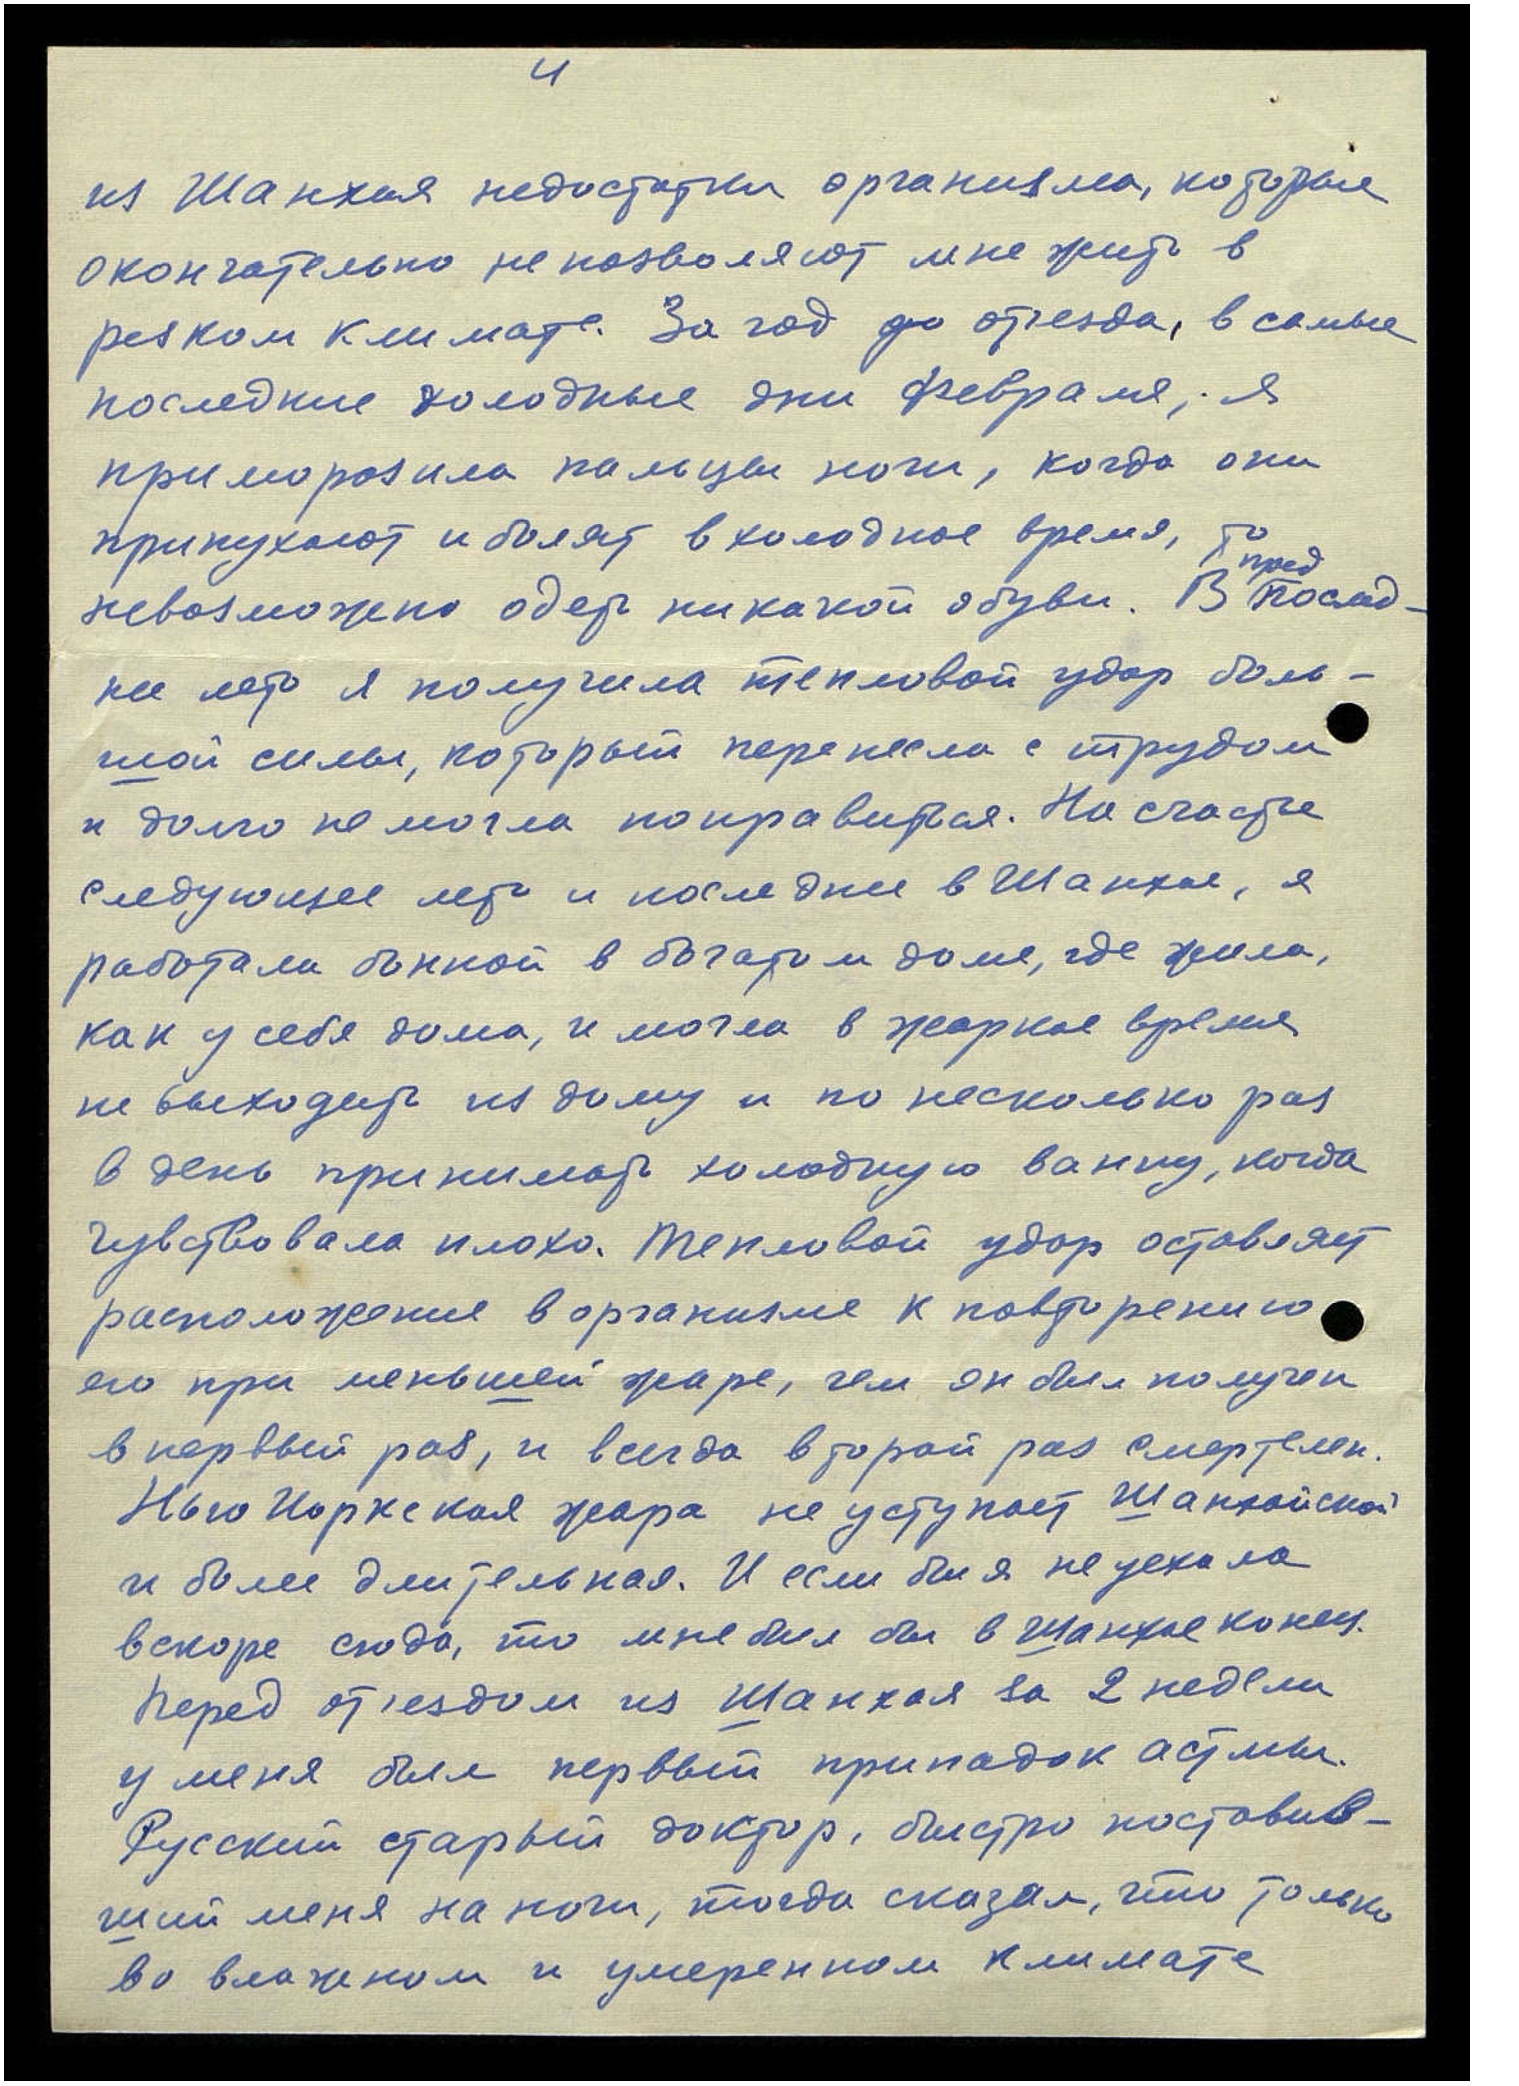 4
из Шанхая недостатки организма, которые
окончательно не позволяют мне жить в
резком климате. За год до отъезда, в самые
последние холодные дни февраля, я
приморозила пальцы ноги, когда они
припухают и болят в холодное время, то
невозможно одеть никакой обуви. В предпослед-
нее лето я получила тепловой удар боль-
шой силы, который перенесла с трудом
и долго не могла поправиться. На счастье
следующее лето и последнее в Шанхае, я
работала бонной в богатом доме, где жила,
как у себя дома, и могла в жаркое время
не выходить из дому и по несколько раз
в день принимать холодную ванну, когда
чувствовала плохо. Тепловой удар оставляет
расположение в организме к повторению
его при меньшей жаре, чем он был получен
в первый раз, и всегда второй раз смертелен.
Нью Иоркская жара не уступает Шанхайской
и более длительная. И если бы я не уехала
вскоре сюда, то мне был бы в Шанхае конец.
Перед отъездом из Шанхая за 2 недели
у меня был первый припадок астмы.
Русский старый доктор, быстро поставив-
ший меня на ноги, тогда сказал, что только
во влажном и умеренном климате